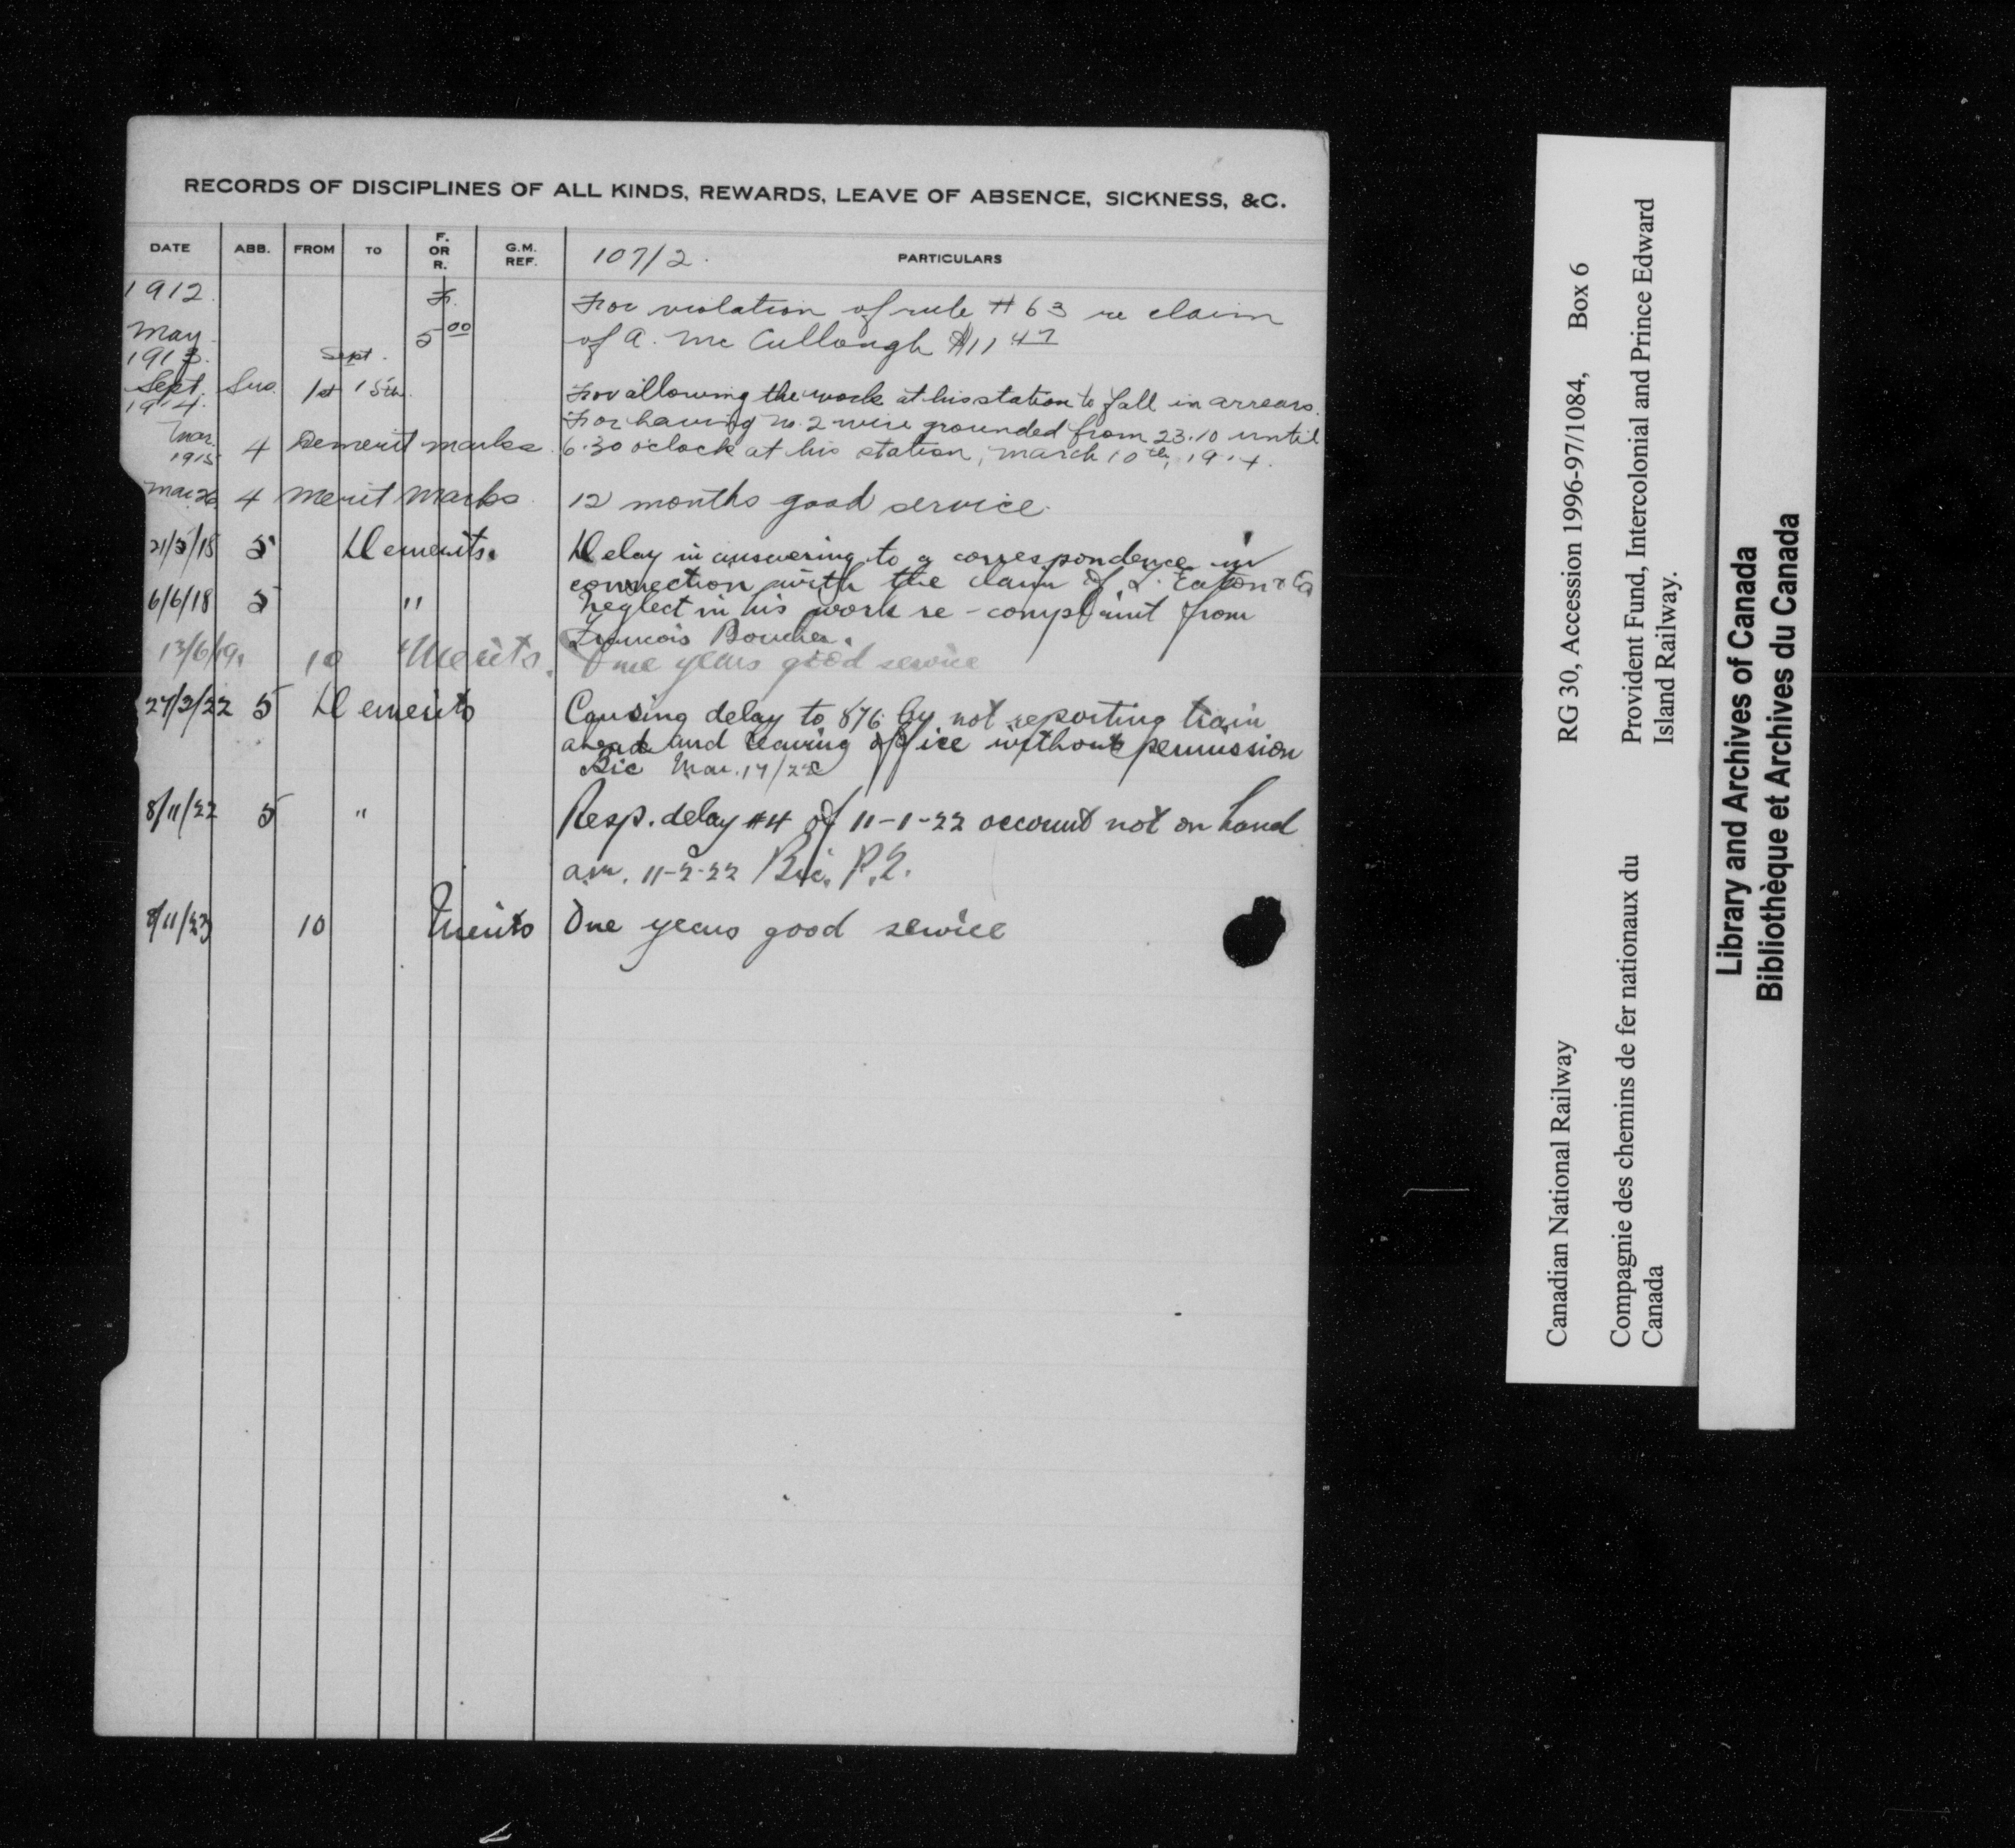 RECORDS OF DISCIPLINES OF ALL KINDS, REWARDS, LEAVE OF ABSENCE, SICKNESS, &C.
DATE ABB. FROM TO F. OR R. G.M. REF. 107/2. PARTICULARS
1912. Fr. For violation of rule #63 re claim
May 5 00 of A. McCullough $11 47
1913. Sept.
Sept. Sus. 1st 15th For allowing the work at his station to fall in arrears.
1914. For having no. 2 wire grounded from 23.10 until
Mar. 4 Demerit marks. 6.30 o'clock at his station, March 10th, 1914.
1915
Mar. 26 4 Merit Marks 12 months good service.
21/5/18 5 Demerits. Delay in answering to a correspondence in
connection with the claim of L. Eaton & Co
6/6/18 5 " Neglect in his work re-complaint from
Francois Boucher.
13/6/19. 10 Merits. One years good service
27/3/22 5 Demerits Causing delay to 876 by not reporting train
ahead and leaving office without permission
Bic Mar. 17/22
8/11/22 5 " Resp. delay #4 of 11-1-22 account not on hand
a.m. 11-2-22 Bic. P.Q.
8/11/23 10 Merits One years good service
Canadian National Railway RG 30, Accession 1996-97/1084, Box 6
Compagnie des chemins de fer nationaux du Canada Provident Fund, Intercolonial and Prince Edward Island Railway.
Library and Archives of Canada
Bibliothèque et Archives du Canada